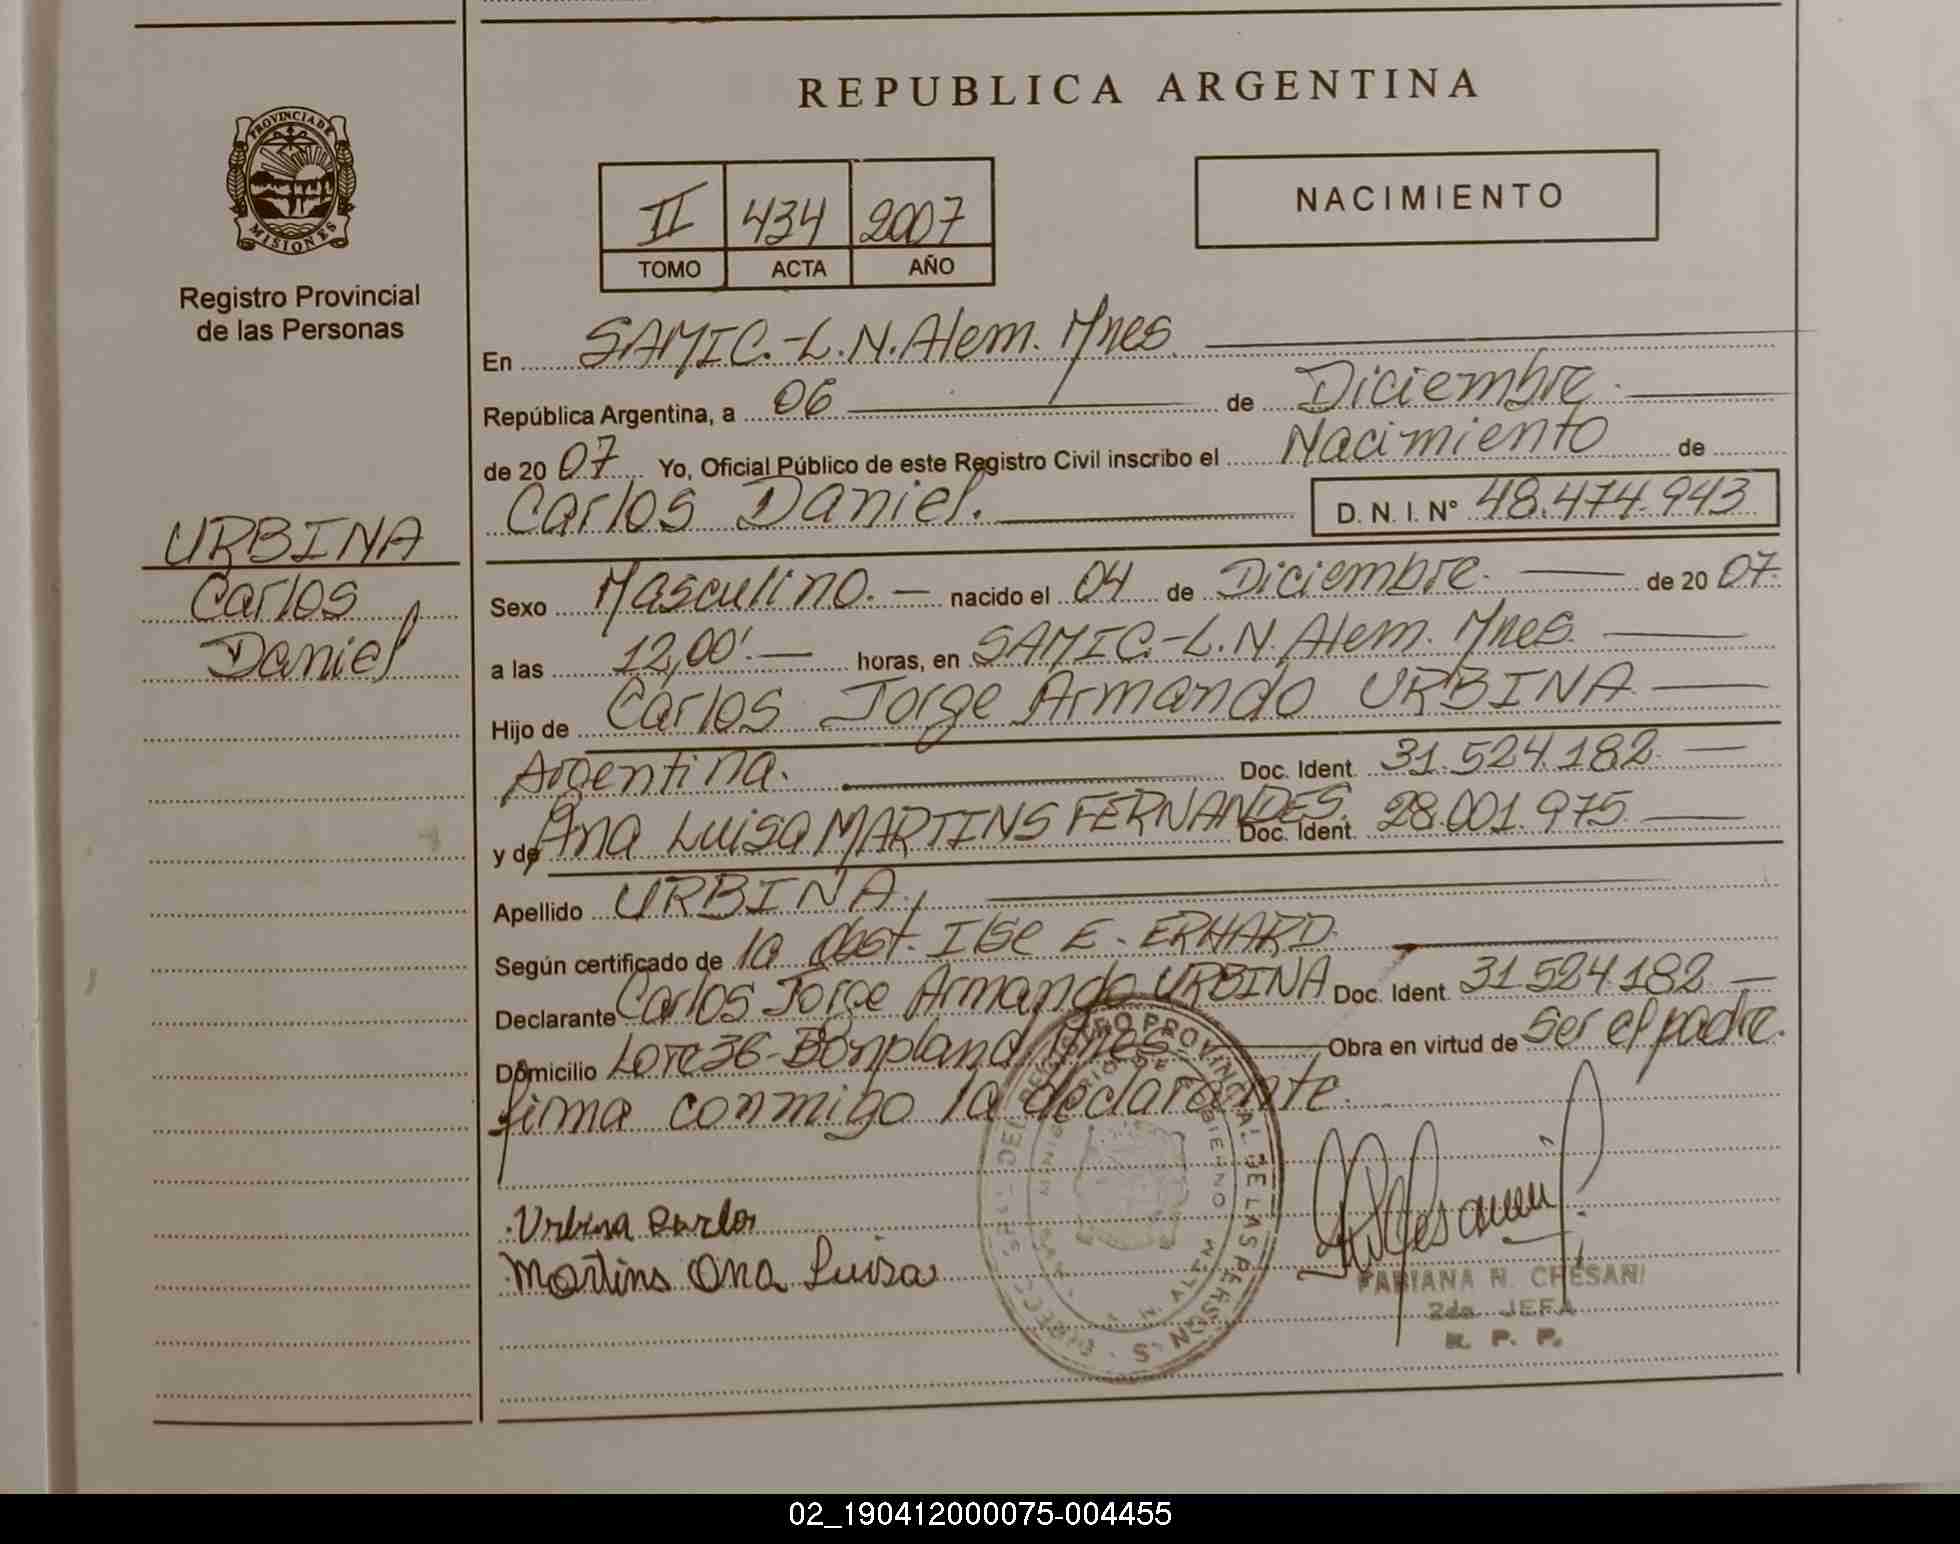 PROVINCIA DE
MISIONES
Registro Provincial
de las Personas
URBINA
Carlos
Daniel
REPUBLICA ARGENTINA
II 434 2007
TOMO ACTA AÑO
NACIMIENTO
En SAMIC.-L.N.Alem. Mnes.
República Argentina, a 06 de Diciembre.
de 20 07 Yo, Oficial Público de este Registro Civil inscribo el Nacimiento de
Carlos Daniel. D. N. I. N° 48.474.943
Sexo Masculino. nacido el 04 de Diciembre. de 20 07.
a las 12,00'. horas, en SAMIC.-L.N. Alem. Mnes.
Hijo de Carlos Jorge Armando URBINA.
Argentina. Doc. Ident. 31.524.182.
y de Ana Luisa MARTINS FERNANDES. Doc. Ident. 28.001.975
Apellido URBINA.
Según certificado de la Obst. Ilse E. ERHARD.
Declarante Carlos Jorge Armando URBINA Doc. Ident. 31.524.182
Domicilio Lote 36-Bonpland Mnes. Obra en virtud de Ser el padre.
firma conmigo la declarante.
Urbina Carlos
Martins Ana Luisa
PROVINCIAL DE LAS PERSONAS
FABIANA N. CHESANI
2da. JEFA
R. P. P.
02_190412000075-004455